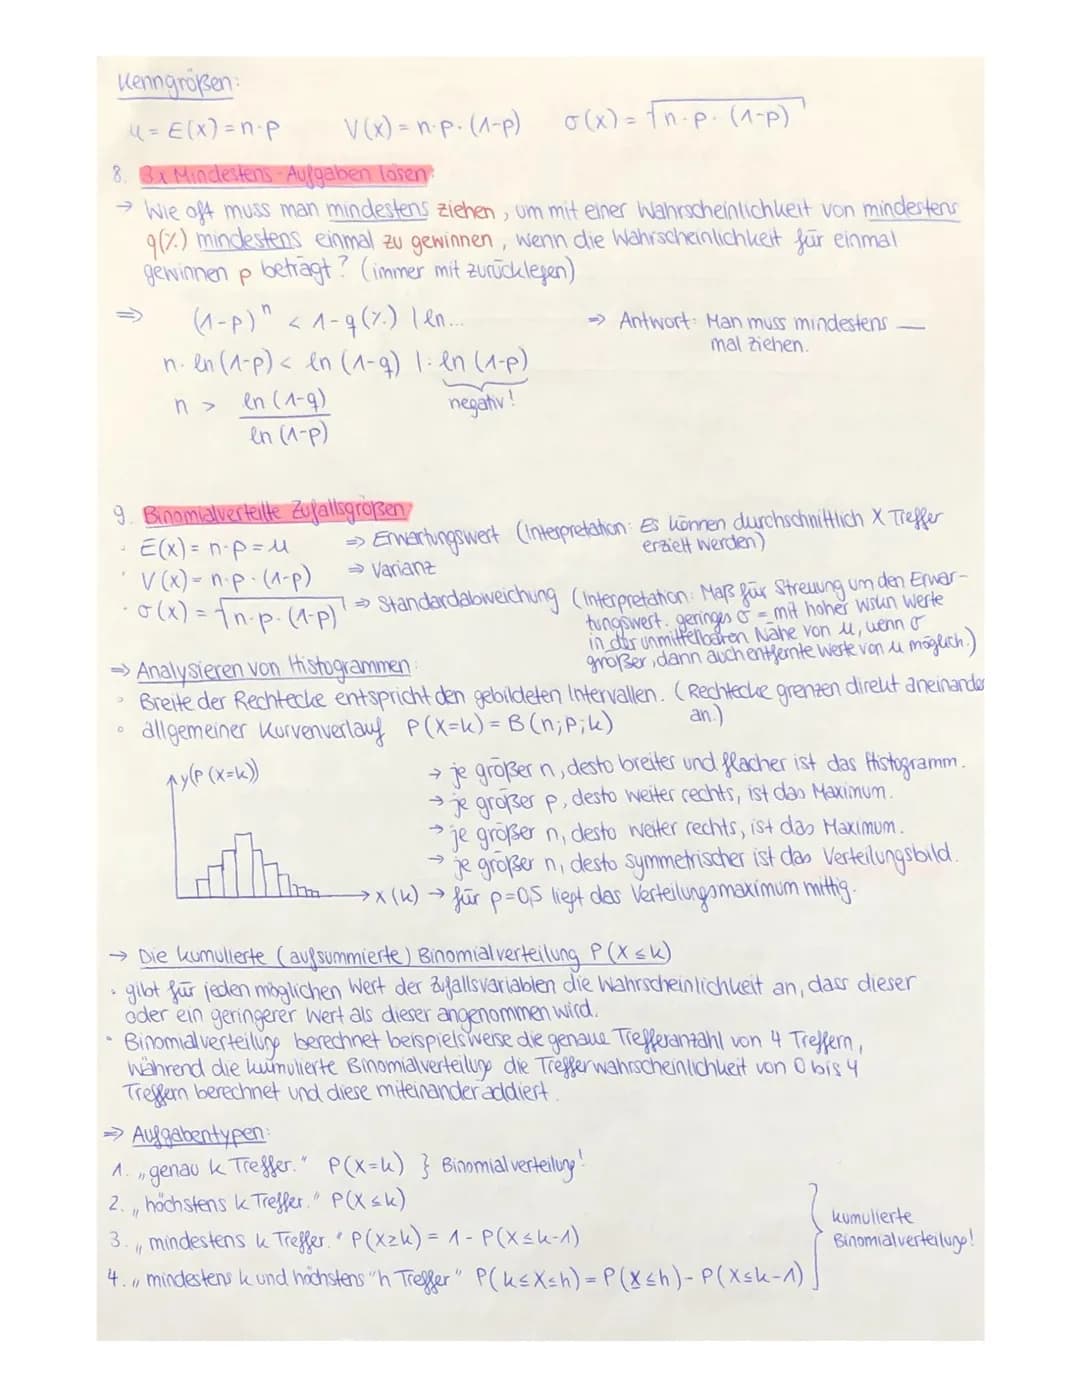 Kenngrößen:
μ = E(X) = n·p   V(X) = n·p·(1-p)   σ(X) = √n·p·(1-p)
8. 3x Mindestens-Aufgaben lösen:
→ Wie oft muss man mindestens ziehen, um mit einer Wahrscheinlichkeit von mindestens
q(%) mindestens einmal zu gewinnen, wenn die Wahrscheinlichkeit für einmal
gewinnen p beträgt? (immer mit zurücklegen)
⇒ (1-p)ⁿ < 1-q(%) | ln...
⇒ Antwort: Man muss mindestens __
mal ziehen.
n·ln(1-p) < ln(1-q) | : ln(1-p)
negativ!
n > ln(1-q)
ln(1-p)
9. Binomialverteilte Zufallsgrößen
· E(X) = n·p = μ ⇒ Erwartungswert (Interpretation: Es können durchschnittlich X Treffer
erzielt werden)
· V(X) = n·p·(1-p) ⇒ Varianz
· σ(X) = √n·p·(1-p) ⇒ Standardabweichung (Interpretation: Maß für Streuung um den Erwar-
tungswert. geringes σ = mit hoher wskn Werte
in der unmittelbaren Nähe von μ, wenn σ
größer, dann auch entfernte Werte von μ möglich.)
⇒ Analysieren von Histogrammen:
◦ Breite der Rechtecke entspricht den gebildeten Intervallen. (Rechtecke grenzen direkt aneinander
an.)
◦ allgemeiner Kurvenverlauf P(X=k) = B(n;p;k)
y(P(X=k))
→ je größer n, desto breiter und flacher ist das Histogramm.
→ je größer p, desto weiter rechts, ist das Maximum.
→ je größer n, desto weiter rechts, ist das Maximum.
→ je größer n, desto symmetrischer ist das Verteilungsbild.
x(k) → für p=0,5 liegt das Verteilungsmaximum mittig.
→ Die kumulierte (aufsummierte) Binomialverteilung P(X≤k)
· gibt für jeden möglichen Wert der Zufallsvariablen die Wahrscheinlichkeit an, dass dieser
oder ein geringerer Wert als dieser angenommen wird.
· Binomialverteilung berechnet beispielsweise die genaue Trefferanzahl von 4 Treffern,
während die kumulierte Binomialverteilung die Trefferwahrscheinlichkeit von 0 bis 4
Treffern berechnet und diese miteinander addiert.
⇒ Aufgabentypen:
1. „genau k Treffer." P(X=k) } Binomialverteilung!
2. „höchstens k Treffer." P(X≤k)
3. „mindestens k Treffer." P(X≥k) = 1 - P(X≤k-1)
4. „mindestens k und höchstens "h Treffer" P(k≤X≤h) = P(X≤h) - P(X≤k-1)
kumulierte
Binomialverteilung!